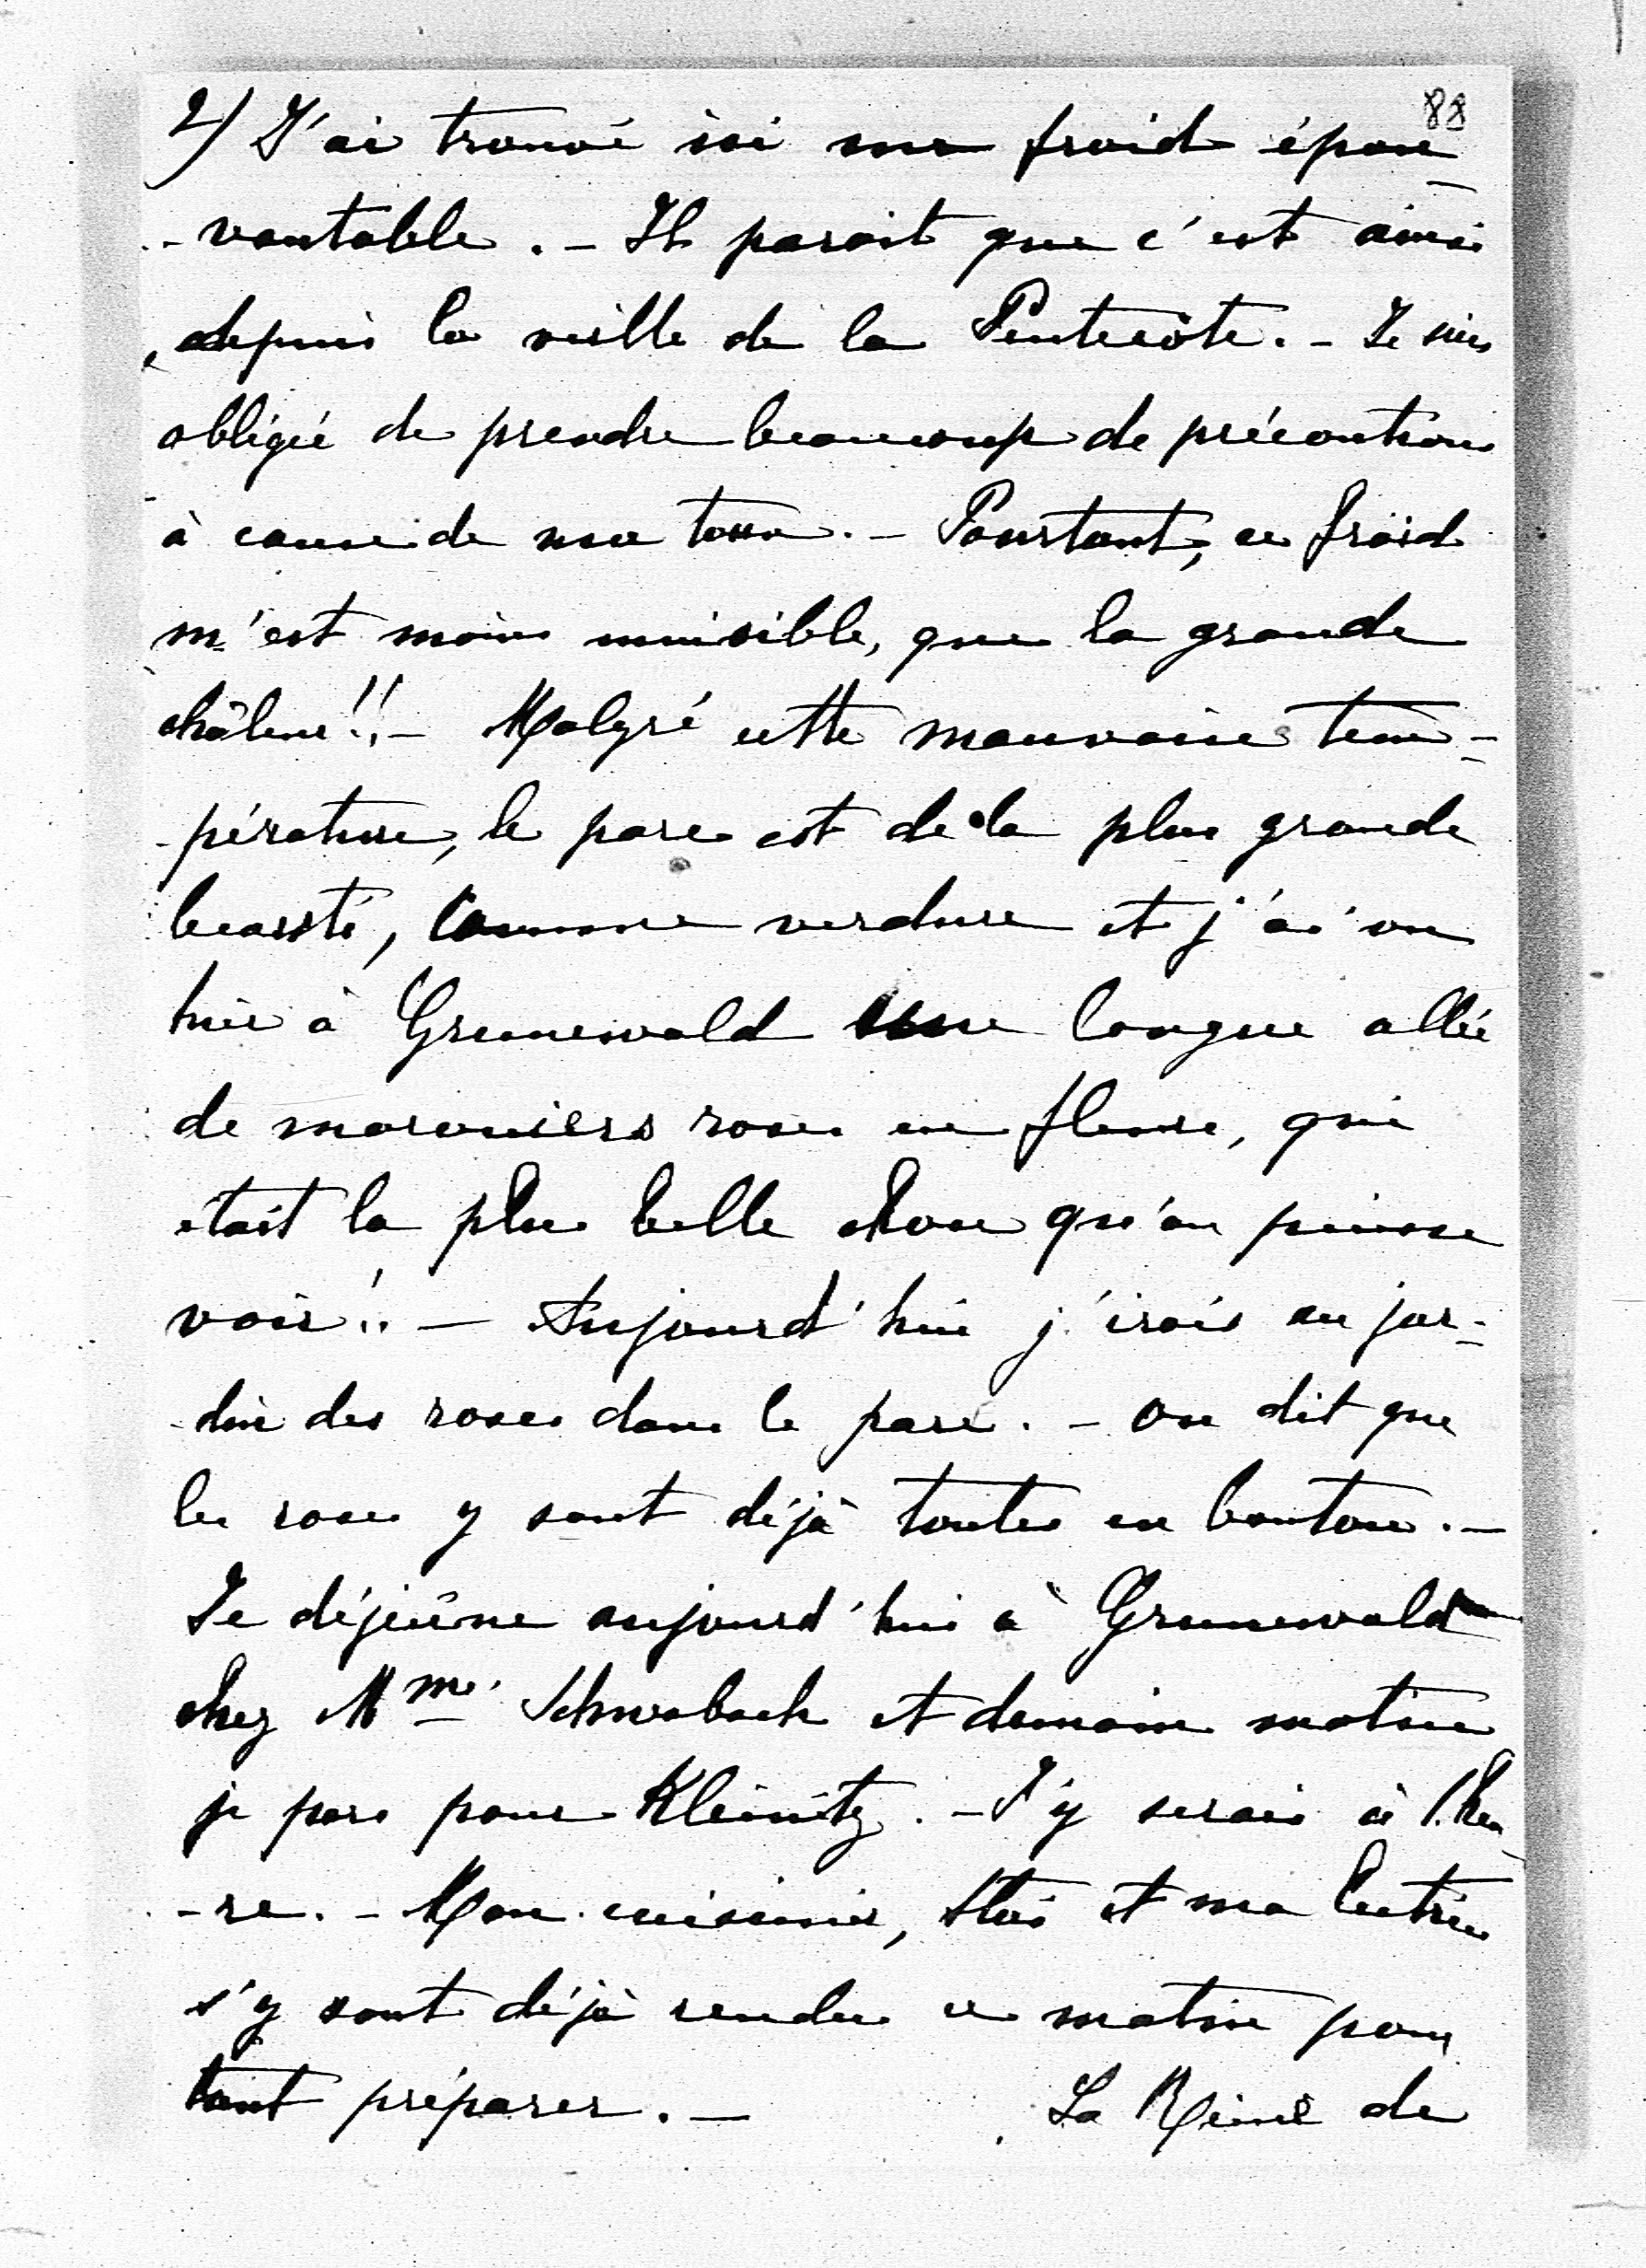 88
2) J'ai trouvé ici un froid épou-
-vantable. - Il parait que c'est ainsi
depuis la veille de la Pentecôte. - Je suis
obligée de prendre beaucoup de précautions
à cause de ma toux. - Pourtant, ce froid
m'est moins nuisible, que la grande
châleur!! - Malgré cette mauvaise tem-
-pérature, le parc est de la plus grande
beauté, comme verdure et j'ai vu
hier à Grunewald une longue allée
de maroniers roses en fleurs, qui
etait la plus belle chose qu'on puisse
voir!! - Aujourd'hui j'irais au jar-
-din des roses dans le parc. - On dit que
les roses y sont déjà toutes en bouton. -
Je déjeûne aujourd'hui à Grunewald
chez Mme Schwabach et demain matin
je pars pour Kleinitz. - J'y serais à 1. heu-
-re. - Mon cuisinier, et ma
s'y sont déjà rendus ce matin pour
tout préparer. - La Reine de